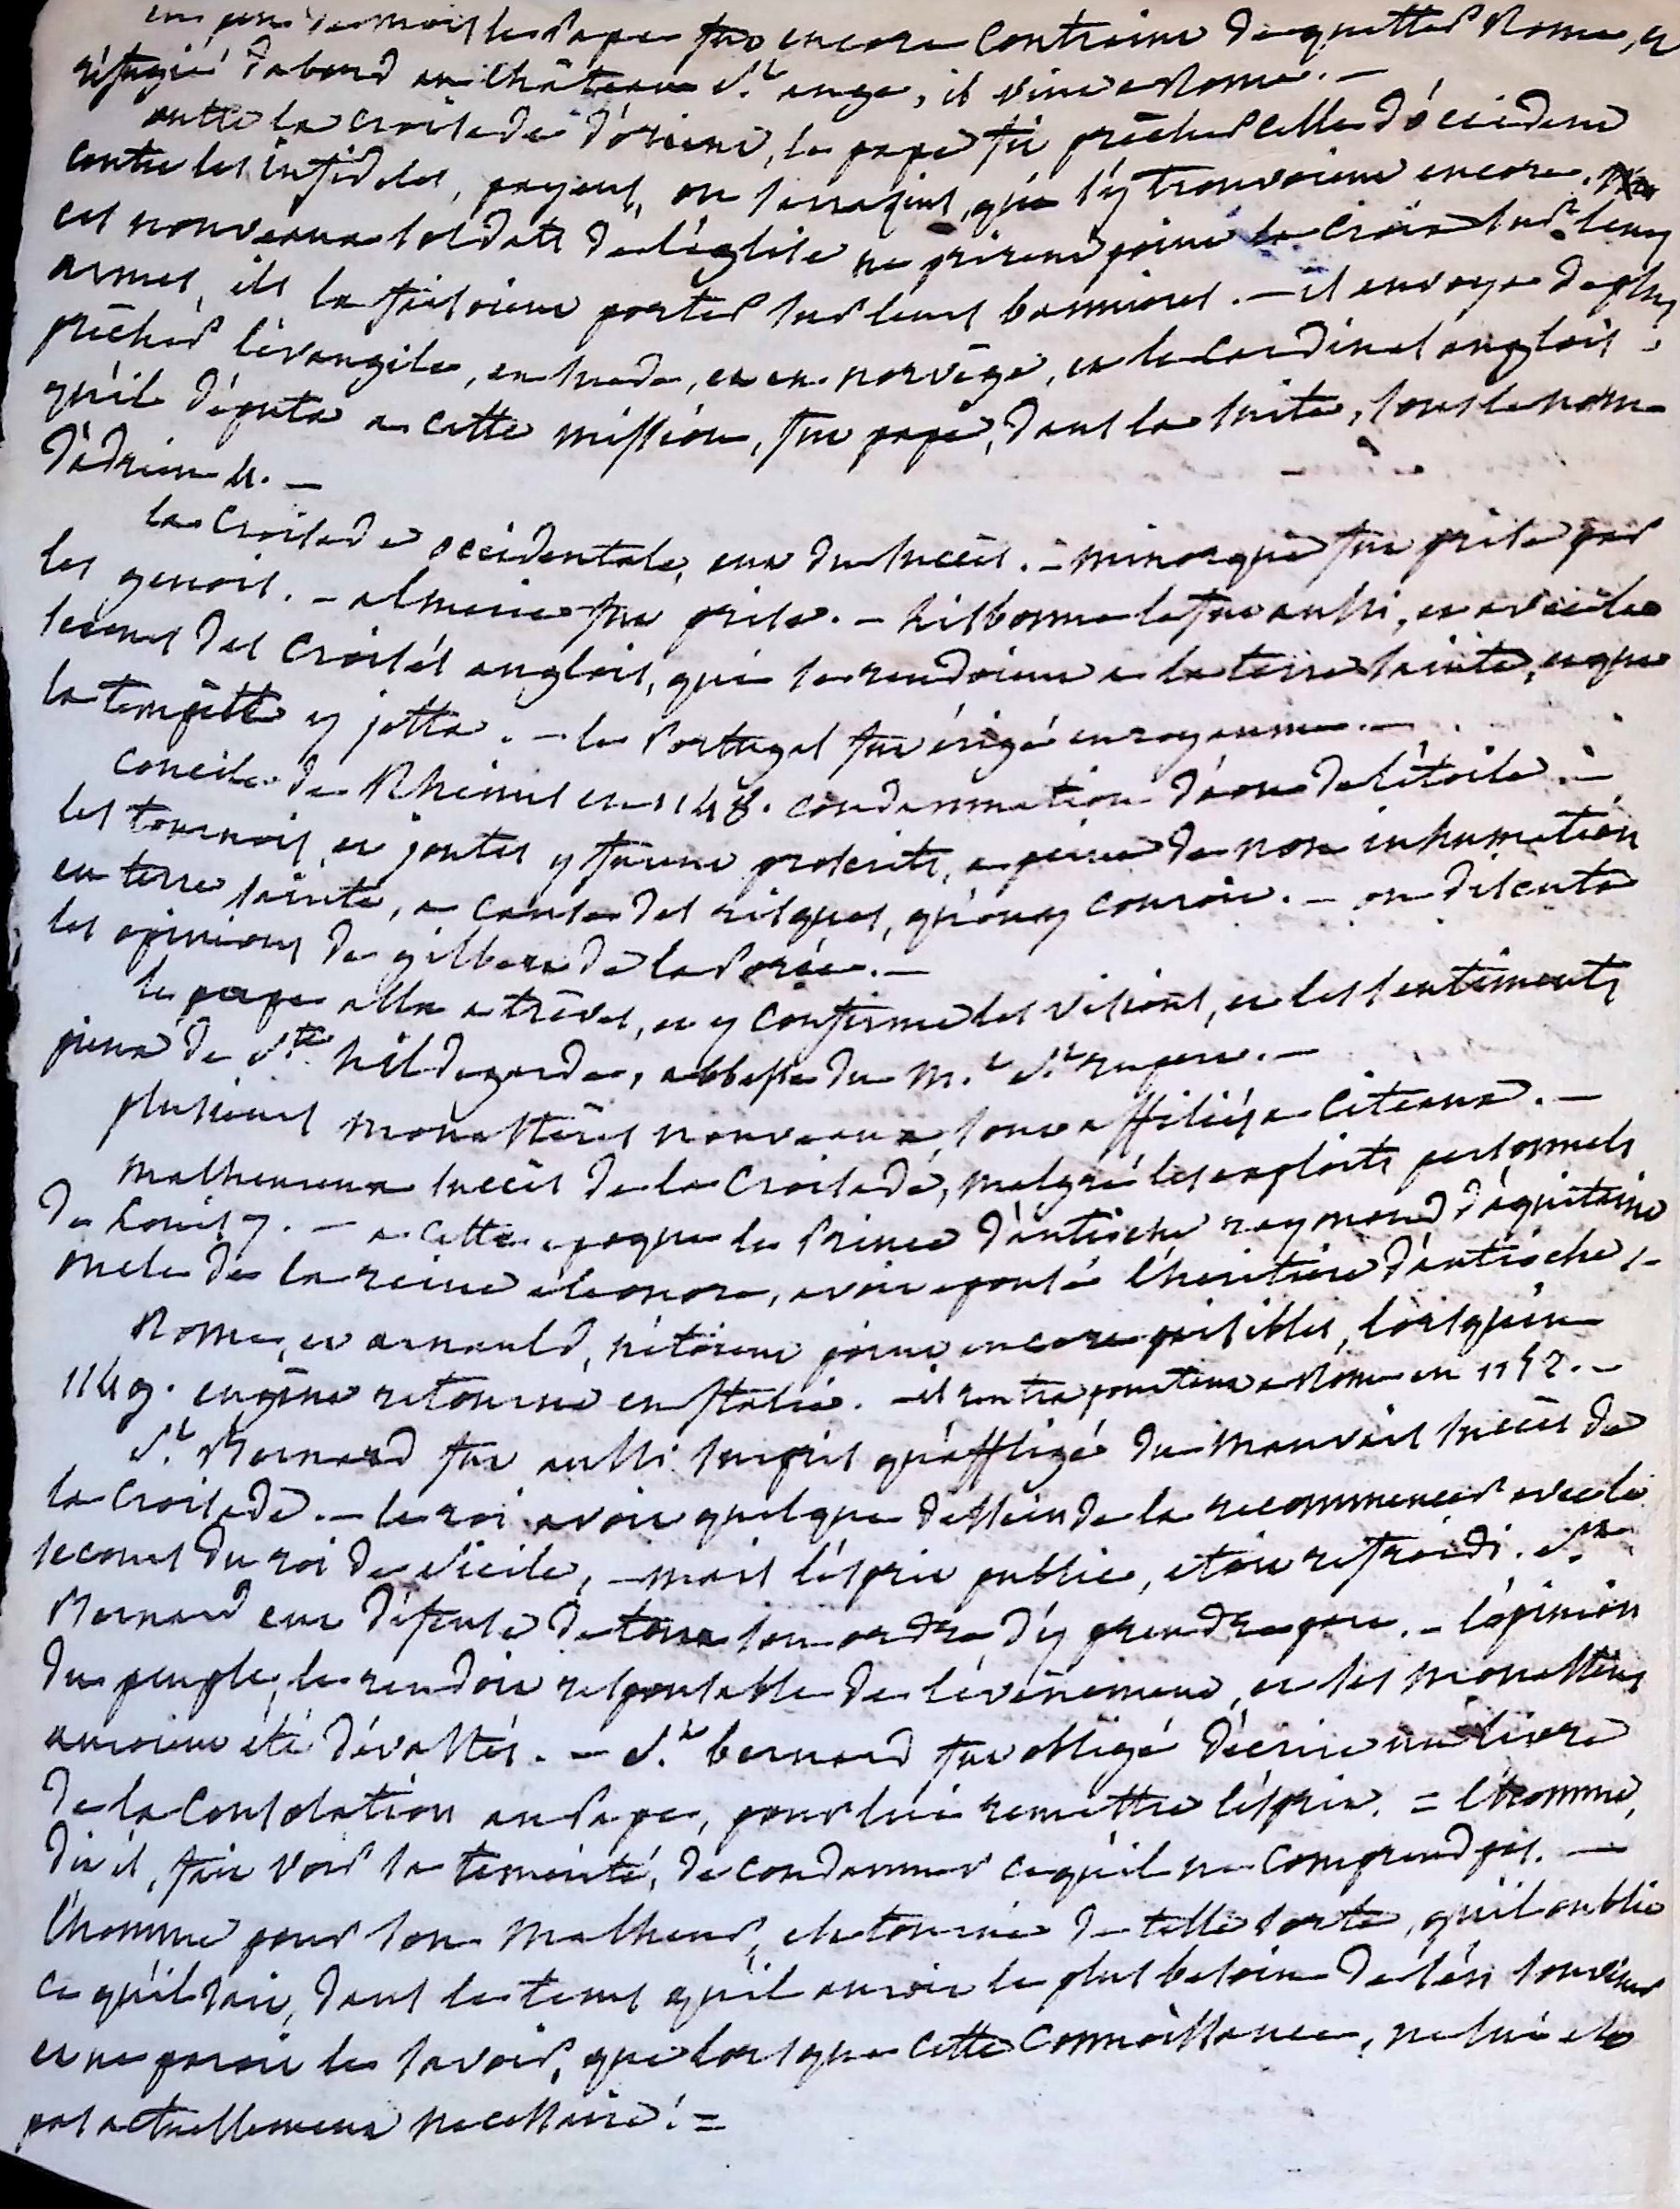 en peu de mois le Pape fut encore contraint de quitter Rome, et
réfugié d'abord au château St. ange, il vint a Rome. —
outre la croisade d'orient, le pape fit prêcher celle d'occident
contre les infideles, payens, ou sarrazins, qui s'y trouvoient encore.
ces nouveaux soldats de l'église ne prirent point la croix sur leurs
armes, ils la faisoient porter sur leurs bannieres. — il envoya de plus
prêcher l'évangile, en suede, et en norvège, et le cardinal anglois,
qu'il députa a cette mission, fut pape, dans la suite, sous le nom
d'adrien 4. —
la croisade occidentale, eut du succès. — minorque fut prise par
les genois. — almerie fut prise. — lisbonne le fut aussi, et avec le
secours des croisés anglois, qui se rendoient a la terre sainte, et que
la tempête y jetta. — le Portugal fut érigé en royaume. —
concile de Rheims en 1148. condamnation d'éon de l'étoile. —
les tournois, et joutes y furent proscrits, a peine de non inhumation
en terre sainte, a cause des risques, qu'on y couroit. — on discuta
les opinions de gilbert de la Porée. —
le pape alla a trèves, et y confirma les visions, et les sentiments
pieux de Ste. hildegarde, abbesse du M.t St. rupert. —
plusieurs monastères nouveaux, sont affiliés a Citeaux. —
malheureux succès de la croisade, malgré les exploits personnels
de Louis 7. — a cette epoque le Prince d'antioche raymond d'aquitaine
oncle de la reine éléonore, avoit epousé l'héritiere d'antioche, —
Rome, et arnauld, n'étoient point encore paisibles, lorsqu'en
1149. eugène retourna en Italie. — il rentra pourtant a Rome en 1152. —
St. Bernard fut aussi surpris qu'affligé du mauvais succès de
la croisade. — le roi avoit quelque dessein de la recommencer avec le
secours du roi de Sicile, — mais l'esprit public, etoit refroidi. St.
Bernard eut défense de tout son ordre d'y prendre part. — l'opinion
du peuple, le rendoit responsable de l'évènement, et ses monastères
auroient été dévastés. — St. bernard fut obligé d'écrire un livre
de la consolation au Pape, pour lui remettre l'esprit. = l'homme,
dit il, fait voir sa temérité, de condamner ce qu'il ne comprend pas. —
l'homme pour son malheur, est tourné de telle sorte, qu'il oublie
ce qu'il sait, dans le tems qu'il auroit le plus besoin de s'en souvenir
et ne paroit le savoir, que lorsque cette connoissance, ne lui est
pas actuellement necessaire! =